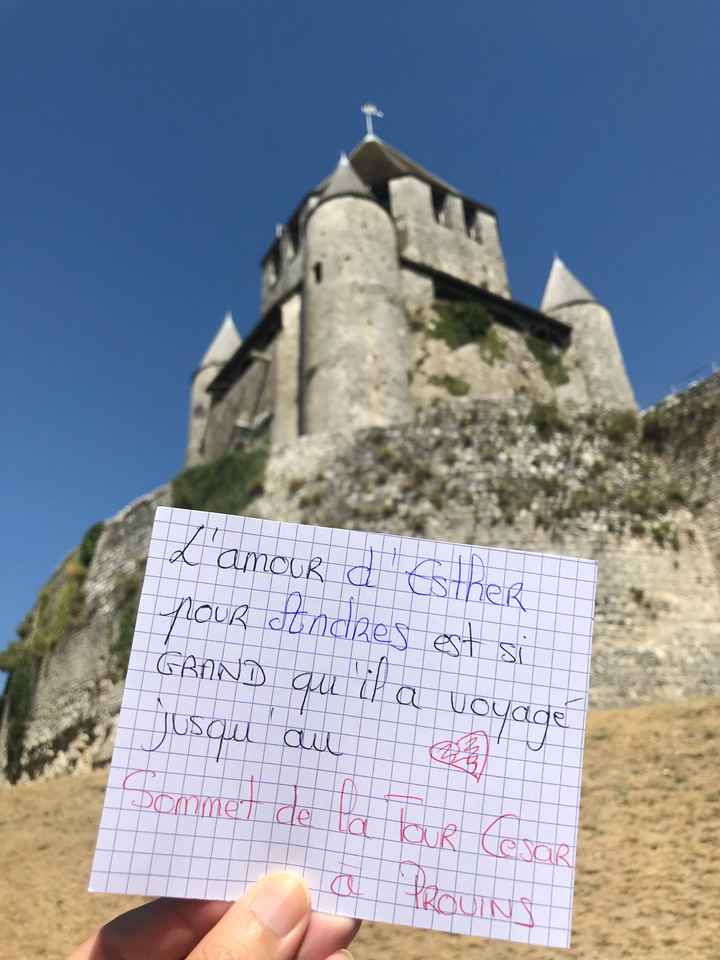 L'amour d'Esther
pour Andres est si
GRAND qu'il a voyagé
jusqu'au
Sommet de la Tour Cesar
à Provins